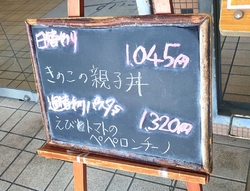 日替わり
1045円
きのこの親子丼
週替わりパスタ
1320円
えびとトマトの
ペペロンチーノ